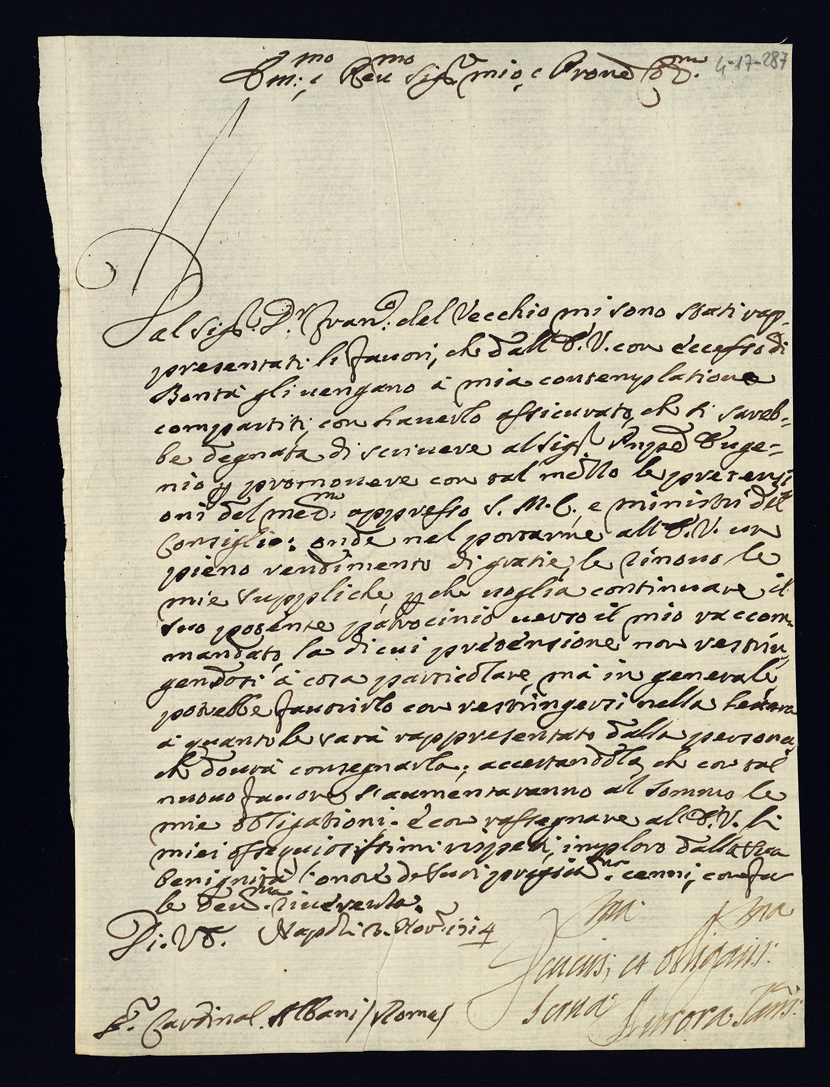 Em:mo e Reu:mo Sig:r mio, e Prone
4-17-287
Dal Sig:r D:r Fran:co del Vecchio mi sono stati rap-
presentati li fauori, che dall'E.V. con eccesso di
Bontà gli uengano à mia contemplatione
compartiti, con hauerlo assicurato, che si sareb-
be degnata di scriuere al Sig:r Euge-
nio promouere con tal mezzo le pretensi
oni del med:mo appresso S.M.C. e ministri del
Consiglio: onde nel portarne all'E.V. un
pieno rendimento di gratie, le rinouo le
mie suppliche, che uoglia continuare il
suo potente patrocinio uerso il mio raccom-
mandato, la di cui pretensione non restrin-
gendosi à cosa particolare, mà in generale
potrebbe fauorirlo con restringersi nella
à quanto le sarà rappresentato dalla persona,
che dourà consegnarla; accertandola, che con tal
nuouo fauore s'aumentaranno al sommo le
mie obligationi. e con rassegnare al E.V. li
miei ossequiosissimi rispetti, imploro dalla sua
benignità l'onore de suoi cenni, con
le riuerente.
Di. V.E. Napoli 2. Nou:re 1714
ma ma
et oblig
Serua Aurora
S:r Cardinal Albani / Roma /